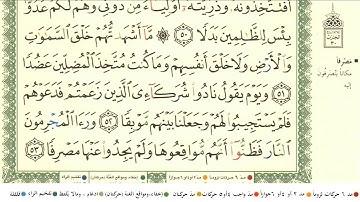 أَفَتَتَّخِذُونَهُۥ وَذُرِّيَّتَهُۥٓ أَوْلِيَآءَ مِن دُونِي وَهُمْ لَكُمْ عَدُوٌّۢ
بِئْسَ لِلظَّٰلِمِينَ بَدَلًا ۝٥٠ مَّآ أَشْهَدتُّهُمْ خَلْقَ ٱلسَّمَٰوَٰتِ
وَٱلْأَرْضِ وَلَا خَلْقَ أَنفُسِهِمْ وَمَا كُنتُ مُتَّخِذَ ٱلْمُضِلِّينَ عَضُدًا
۝٥١ وَيَوْمَ يَقُولُ نَادُوا۟ شُرَكَآءِىَ ٱلَّذِينَ زَعَمْتُمْ فَدَعَوْهُمْ
فَلَمْ يَسْتَجِيبُوا۟ لَهُمْ وَجَعَلْنَا بَيْنَهُم مَّوْبِقًا ۝٥٢ وَرَءَا ٱلْمُجْرِمُونَ
ٱلنَّارَ فَظَنُّوٓا۟ أَنَّهُم مُّوَاقِعُوهَا وَلَمْ يَجِدُوا۟ عَنْهَا مَصْرِفًا ۝٥٣
• مصرفا
مكانا ينصرفون
إليه